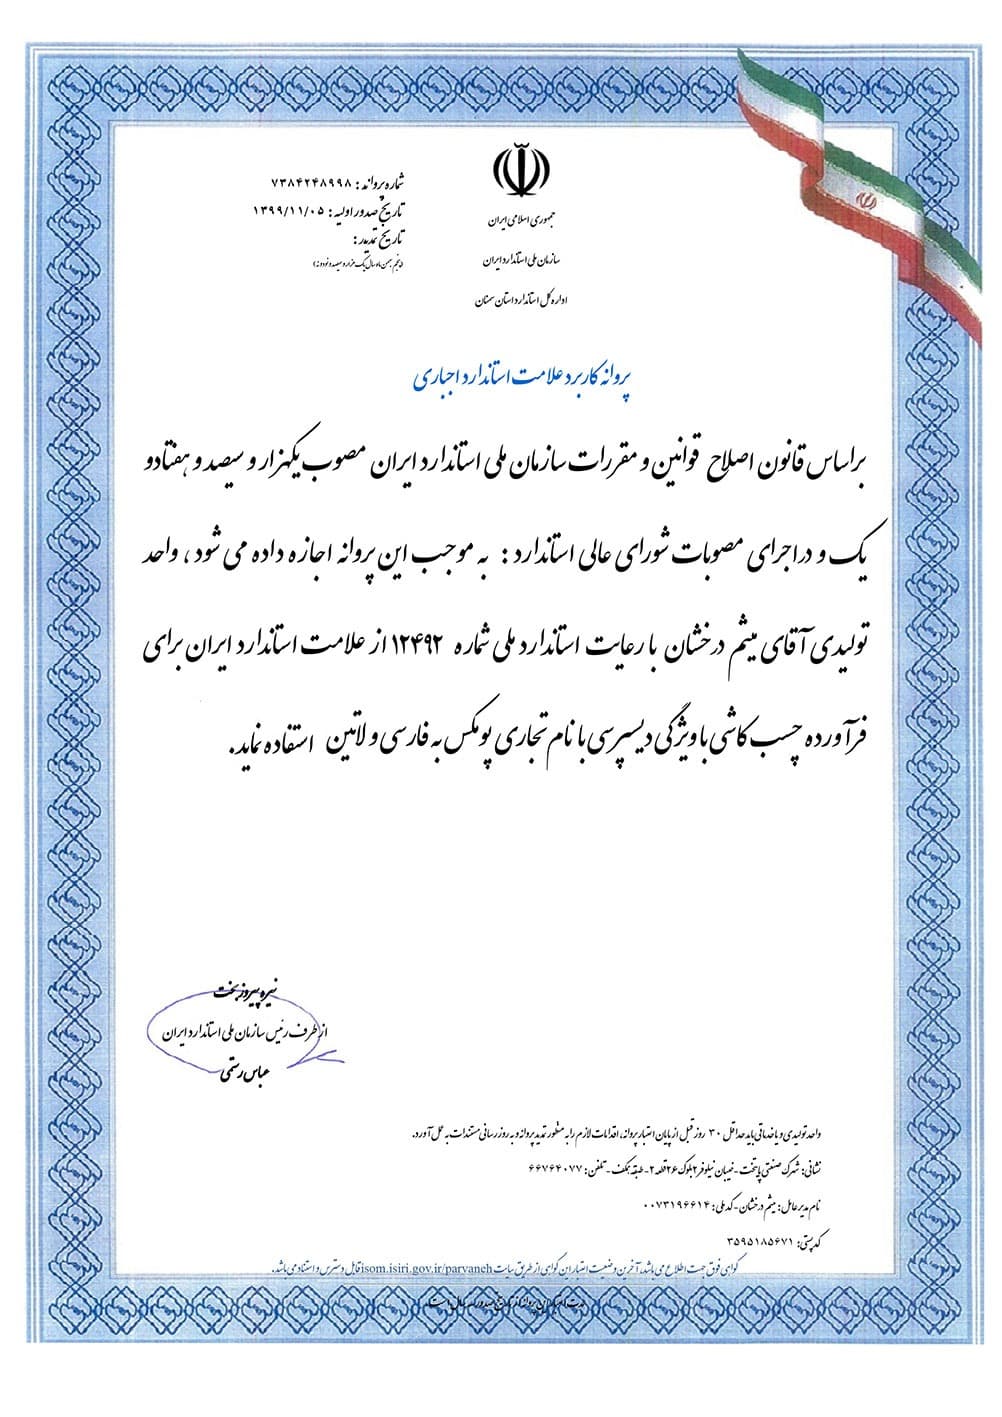 جمهوری اسلامی ایران
سازمان ملی استاندارد ایران
اداره کل استاندارد استان سمنان
شماره پروانه : ۷۳۸۴۲۴۸۹۹۸
تاریخ صدور اولیه : ۱۳۹۹/۱۱/۰۵
تاریخ تمدید :
(پنجم بهمن ماه سال یک هزار و سیصد و نود و نه)
پروانه کاربرد علامت استاندارد اجباری
براساس قانون اصلاح قوانین و مقررات سازمان ملی استاندارد ایران مصوب یکهزار و سیصد و هفتاد و
یک و در اجرای مصوبات شورای عالی استاندارد : به موجب این پروانه اجازه داده می شود ، واحد
تولیدی آقای میثم درخشان با رعایت استاندارد ملی شماره ۱۲۴۹۲ از علامت استاندارد ایران برای
فرآورده چسب کاشی با ویژگی دیسپرسی با نام تجاری پومکس به فارسی و لاتین استفاده نماید.
نیره پیروزبخت
از طرف رئیس سازمان ملی استاندارد ایران
عباس رستمی
واحد تولیدی و یا خدماتی باید حداقل ۳۰ روز قبل از پایان اعتبار پروانه، اقدامات لازم را به منظور تمدید پروانه و به روز رسانی مستندات به عمل آورد.
نشانی: شهرک صنعتی پایتخت - خیابان نیلوفر ۲ بلوک ۲۶ قطعه ۲ - طبقه همکف - تلفن: ۶۶۷۶۴۰۷۷
نام مدیر عامل: میثم درخشان - کد ملی: ۰۰۷۳۱۹۶۶۱۴
کد پستی: ۳۵۹۵۱۸۵۶۷۱
گواهی فوق جهت اطلاع می باشد، آخرین وضعیت اعتبار این گواهی از طریق سایت isom.isiri.gov.ir/parvaneh قابل دسترس و استناد می باشد.
مدت اعتبار این پروانه از تاریخ صدور سال است